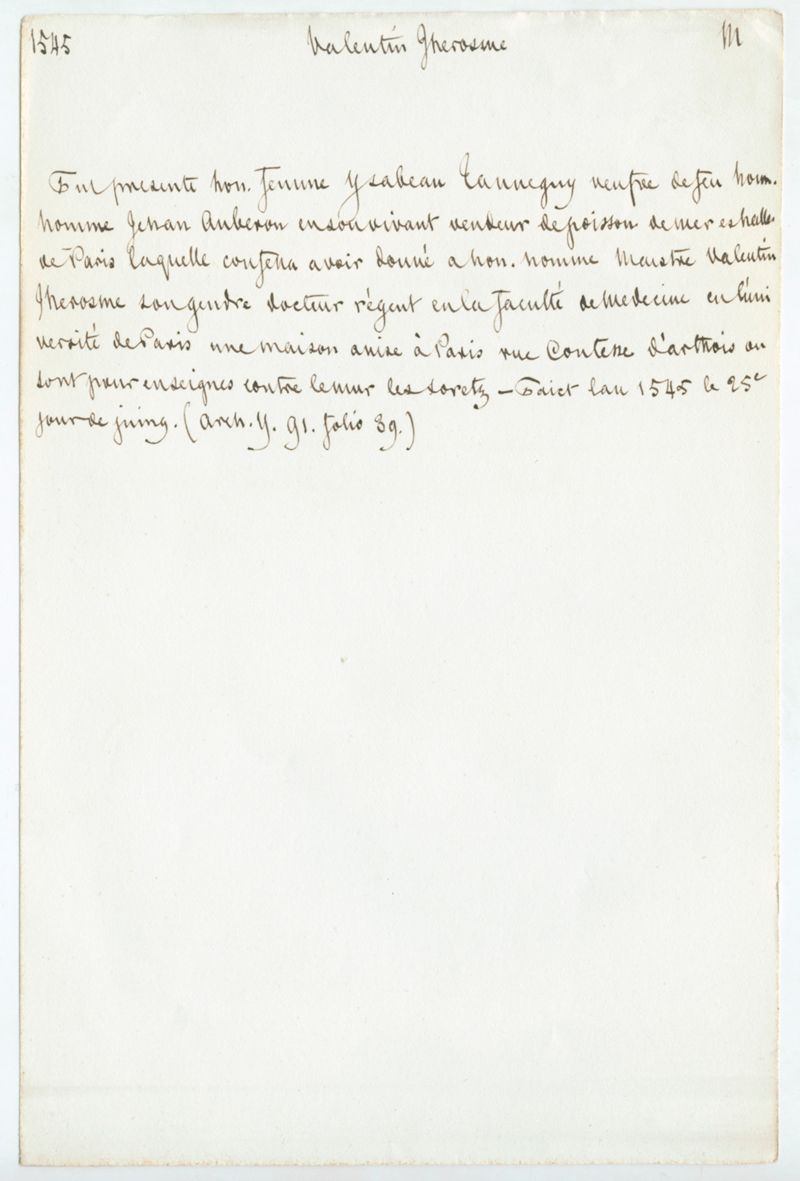 1545 Valentin Jherosme M
Fut presente hon. femme Ysabeau Tanneguy veufve de feu hon.
homme Jehan Auberon en son vivant vendeur de poisson de mer es halles
de Paris laquelle confessa avoir donné a hon. homme Maistre Valentin
Jherosme son gendre docteur régent en la faculté de Medecine en l'uni
versité de Paris une maison assise à Paris rue Contesse d'arthois ou
sont pour enseignes contre le mur les soretz – Faict lan 1545 le 25e
jour de juing. (Arch. Y. 91. folio 39.)